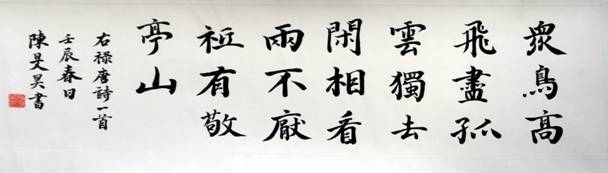 眾鳥高
飛盡孤
雲獨去
閑相看
兩不厭
祗有敬
亭山
右祿唐詩一首
壬辰春日
陳旻昊書